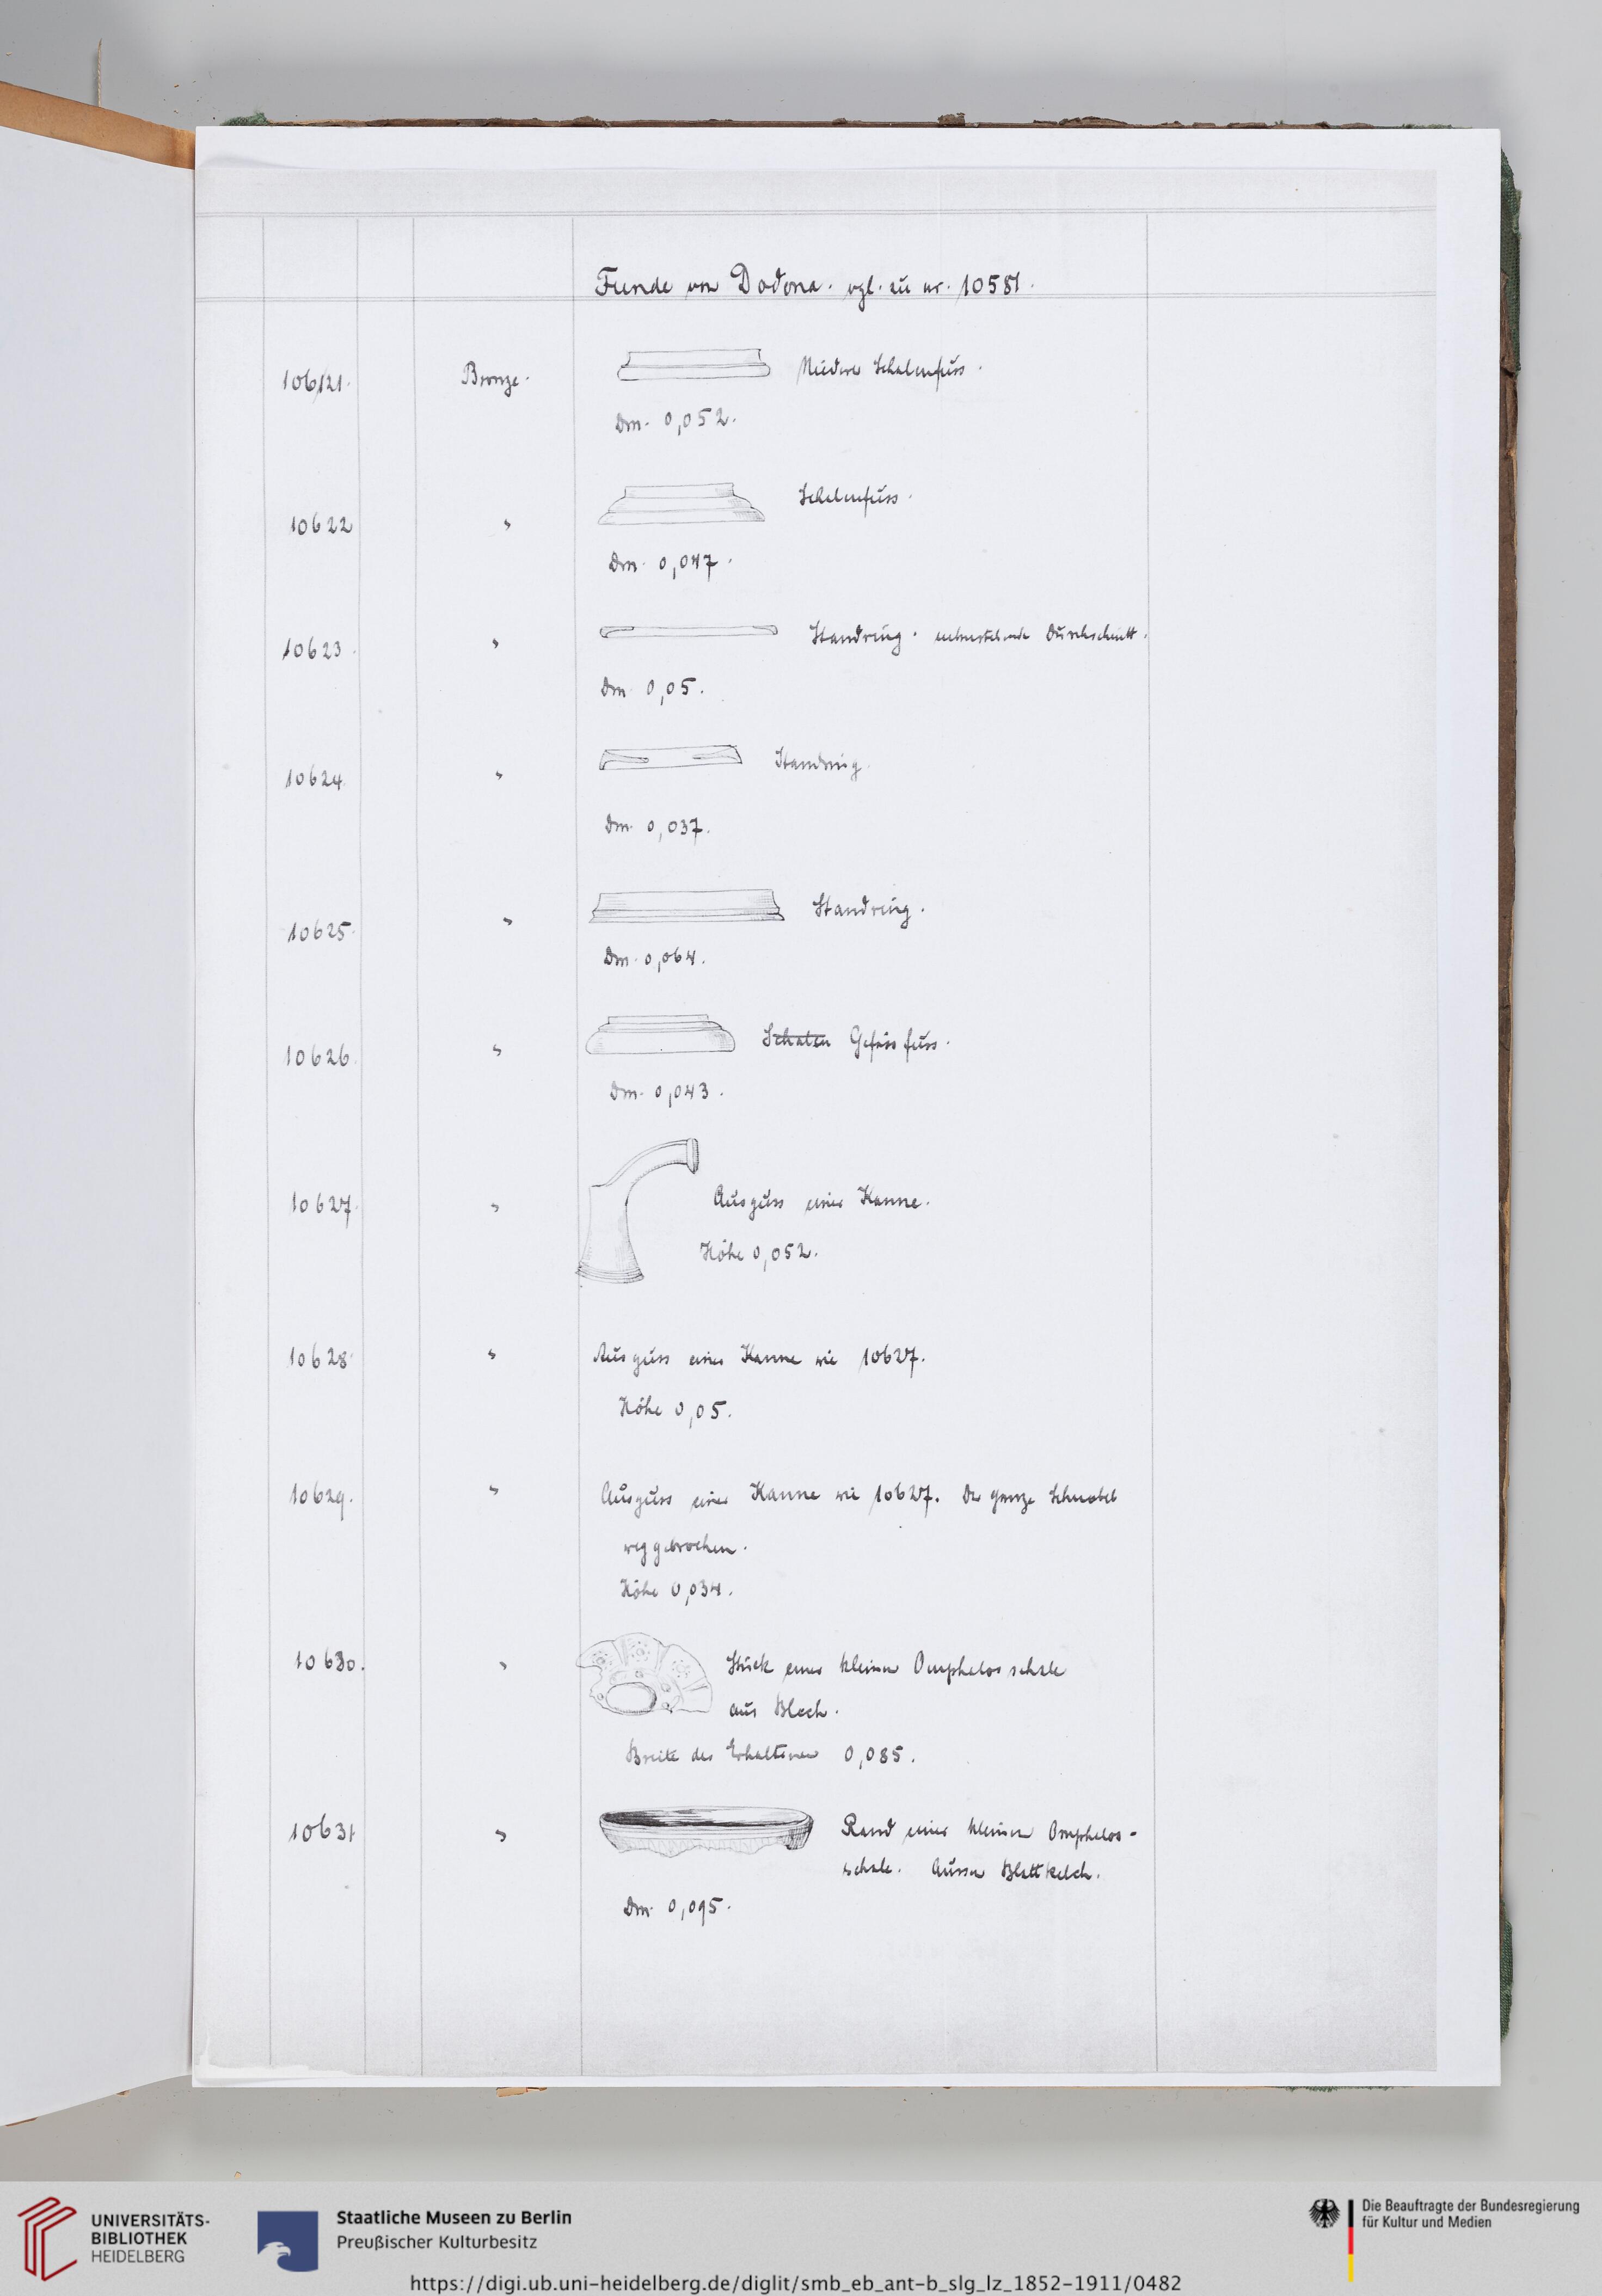 Funde von Dodona. vgl. zu nr. 10581.
10621. Bronze. Niederer Schalenfuss.
Dm. 0,052.
10622 " Schalenfuss.
Dm. 0,047.
10623. " Standring. nebenstehende Durchschnitt.
Dm 0,05.
10624. " Standring.
Dm. 0,037.
10625. " Standring.
Dm. 0,064.
10626. " Schalen Gefäss fuss.
Dm. 0,043.
10627. " Ausguss einer Kanne.
Höhe 0,052.
10628. " Ausguss einer Kanne wie 10627.
Höhe 0,05.
10629. " Ausguss einer Kanne wie 10627. Der ganze Schnabel
weggebrochen.
Höhe 0,034.
10630. " Stück einer kleinen Omphalosschale
aus Blech.
Breite des Erhaltenen 0,085.
10631 " Rand einer kleinen Omphalos-
schale. Aussen Blattkelch.
Dm. 0,095.
UNIVERSITÄTS-
BIBLIOTHEK
HEIDELBERG
Staatliche Museen zu Berlin
Preußischer Kulturbesitz
Die Beauftragte der Bundesregierung
für Kultur und Medien
https://digi.ub.uni-heidelberg.de/diglit/smb_eb_ant-b_slg_lz_1852-1911/0482